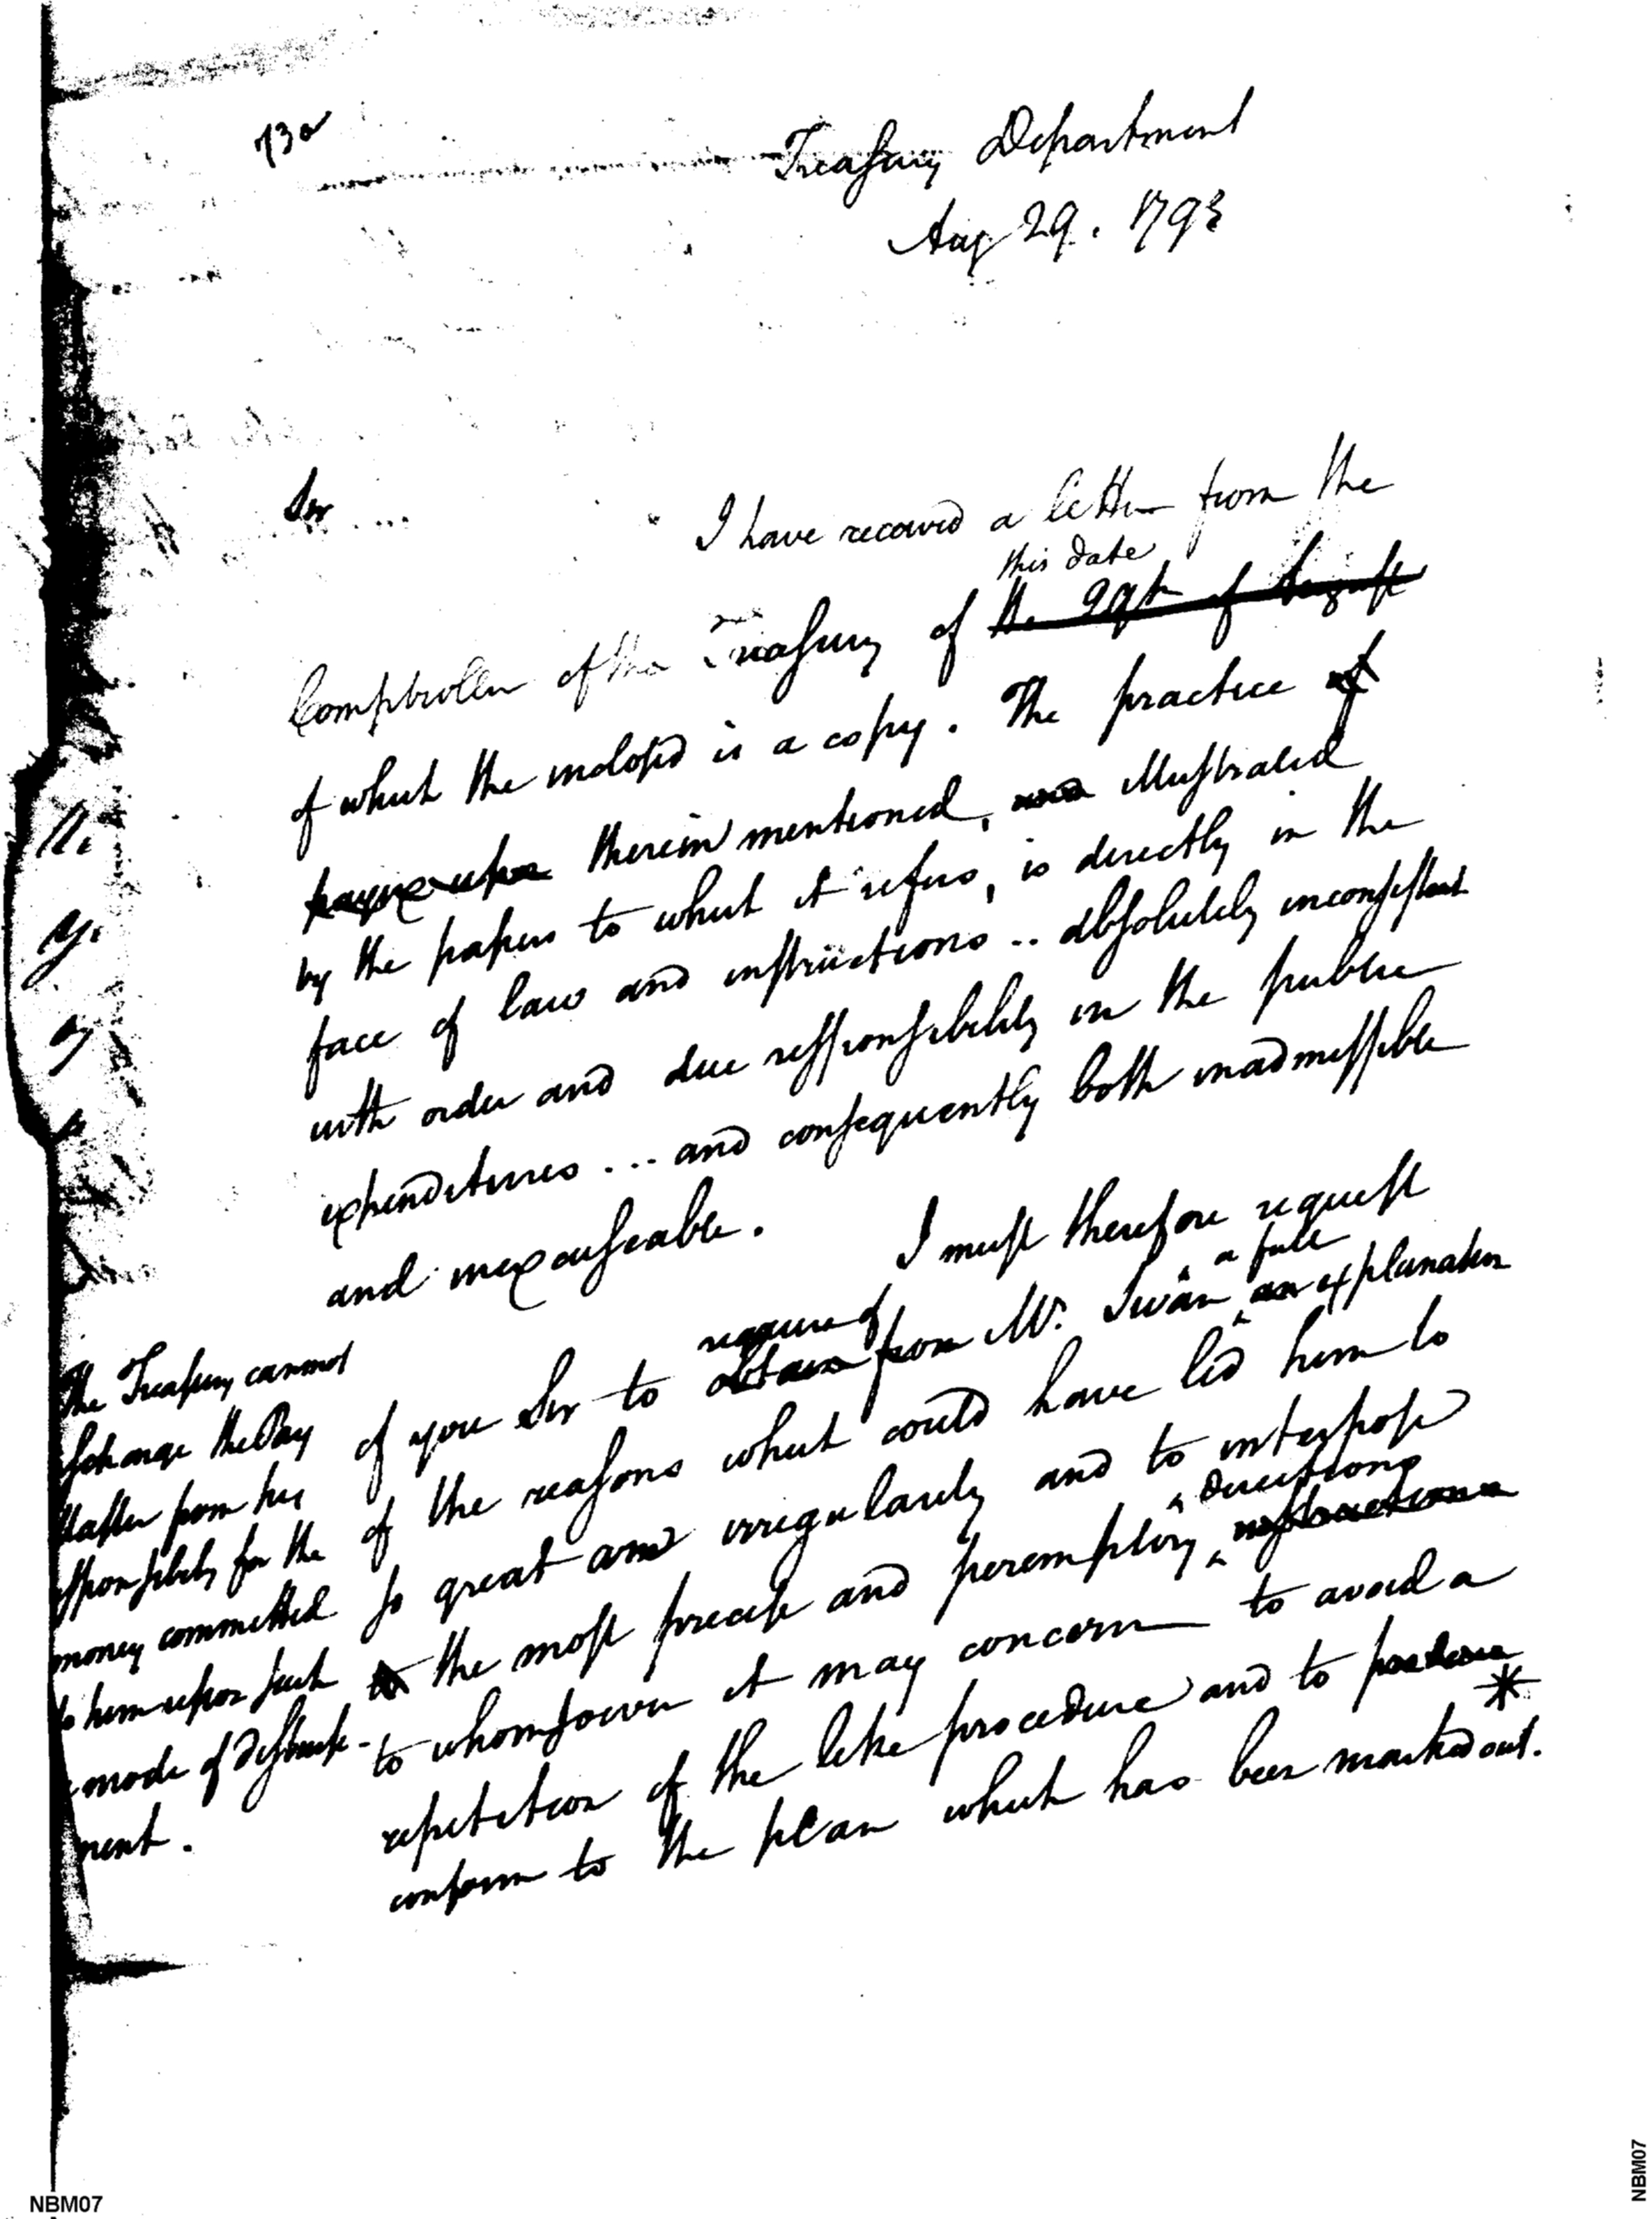 73a
Treasury Department
Aug 29. 1793
Sir ....
I have received a letter from the
this date
Comptroller of the Treasury of the 29th of August
of which the inclosed is a copy. The practice of
therein mentioned, and illustrated
by the papers to which it refers, is directly in the
face of law and instructions .. absolutely inconsistent
with order and due responsibility in the public
expenditures ... and consequently both inadmissible
and inexcuseable.
I must therefore request
a full
require of
of you Sir to obtain from Mr. Swan an explanation
of the reasons which could have led him to
so great an irregularity and to interpose
directions
the most precise and peremptory instructions
to whomsoever it may concern to avoid a
repetition of the like procedure and to
conform to the plan which has been marked out. *
The Treasury cannot
discharge the Pay
Master from his
responsibility for the
money committed
to him upon such
mode of disburse-
ment.
NBM07
NBM07